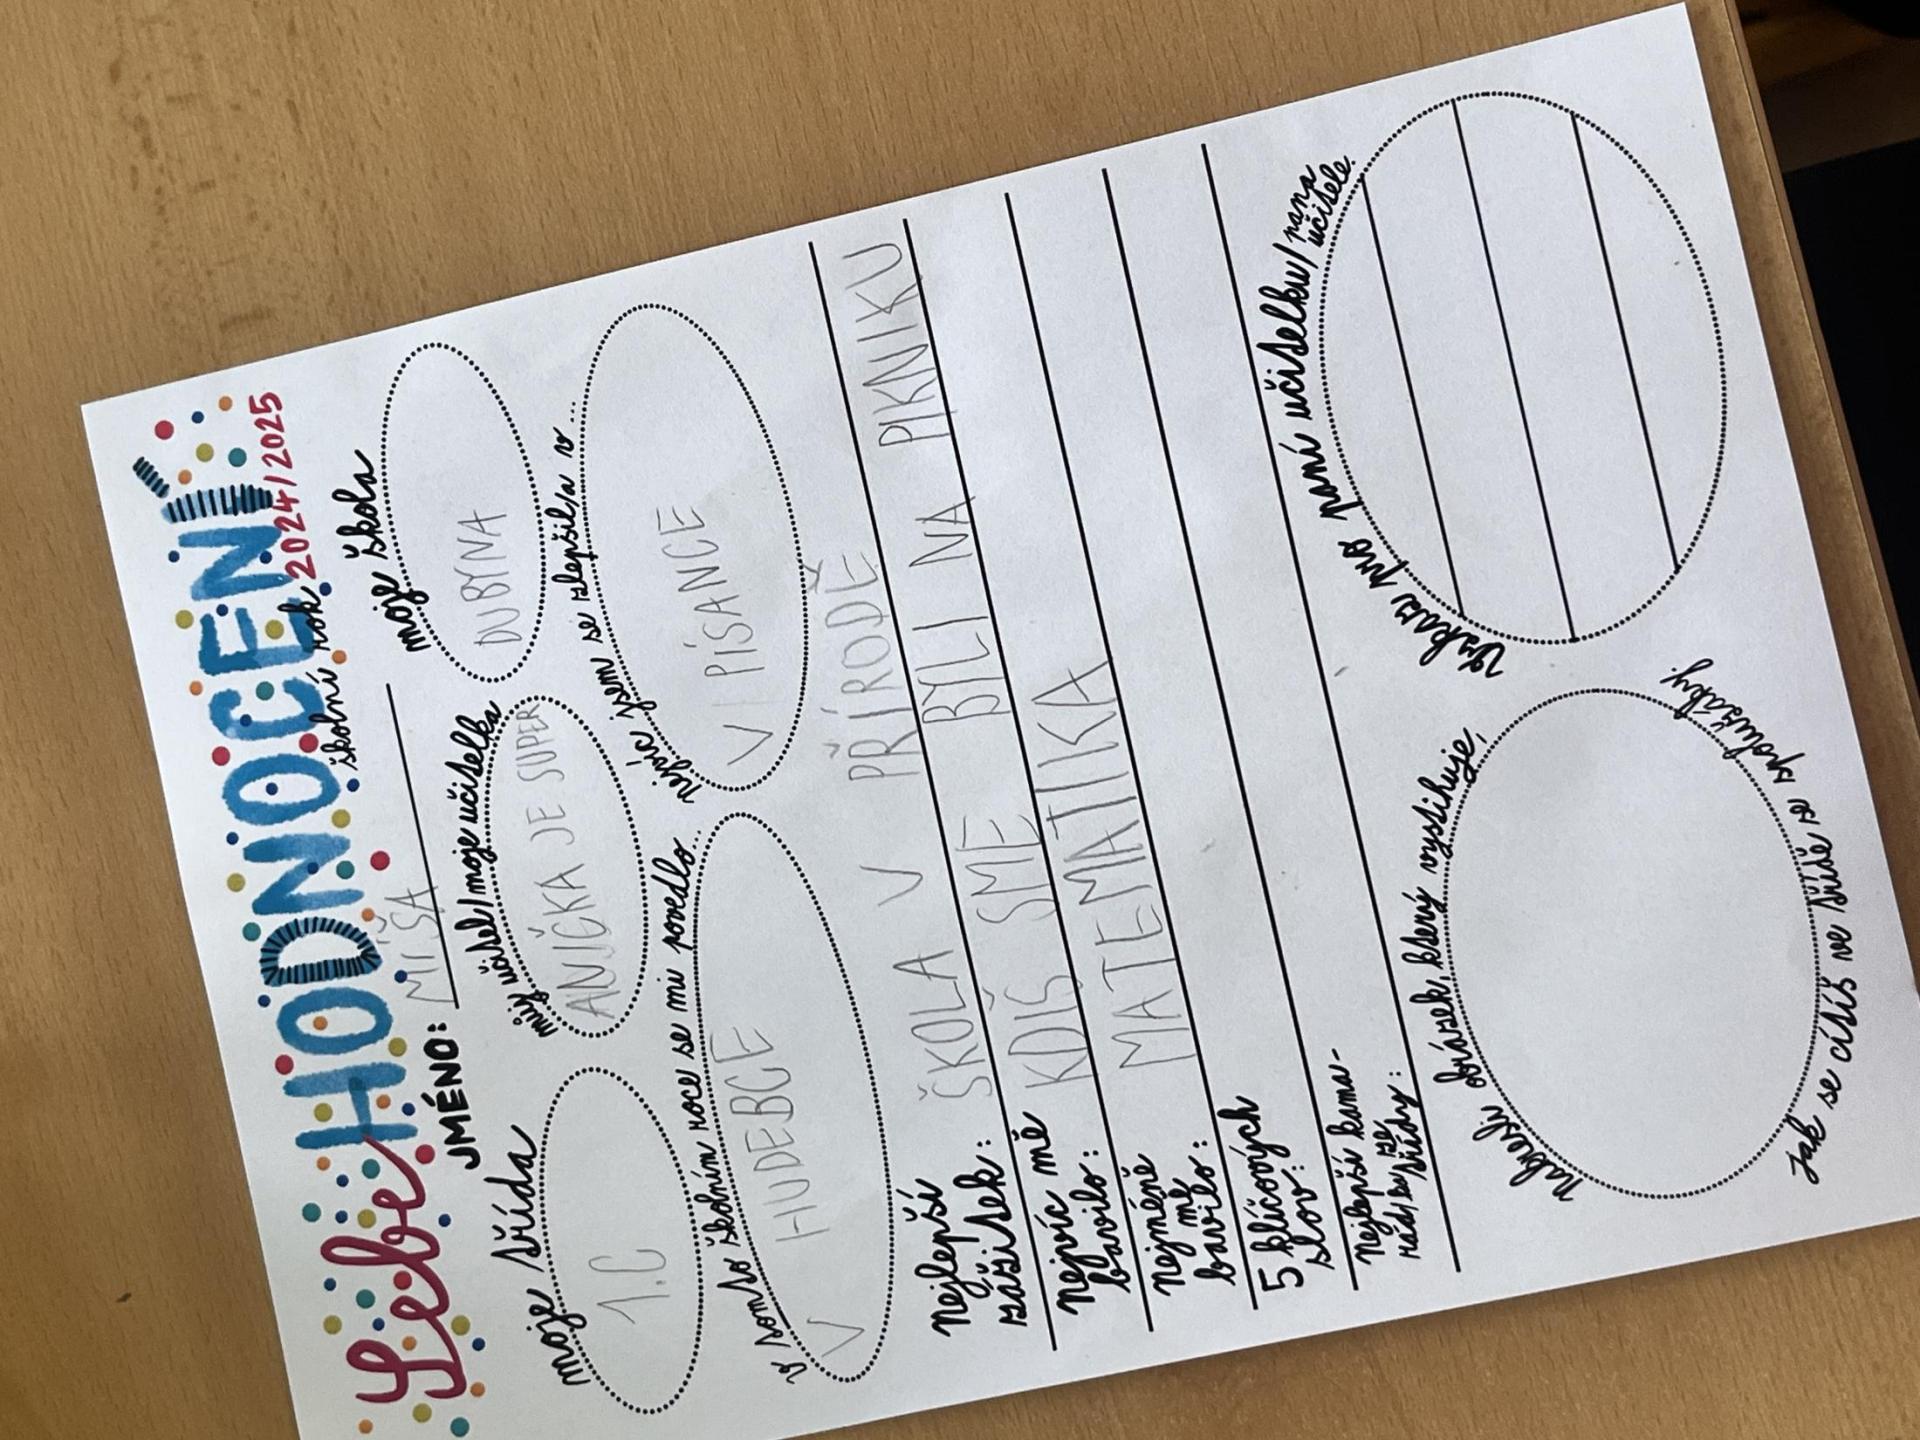 SebeHODNOCENÍ
školní rok 2024/2025
JMÉNO: MÍŠA
moje třída
1.C
můj učitel/moje učitelka
ANIČKA JE SUPER
moje škola
DUBINA
v tomto školním roce se mi povedlo...
V HUDEBCE
nejvíc jsem se zlepšil/a v...
V PÍSANCE
Nejlepší zážitek: ŠKOLA V PŘÍRODĚ
Nejvíc mě bavilo: KDIŠ SME BYLI NA PIKNIKU
Nejméně mě bavilo: MATEMATIKA
5 klíčových slov:
Nejlepší kamarád/ka ze třídy:
Nakresli obrázek, který vystihuje,
jak se cítíš ve třídě se spolužáky.
Vzkaz pro paní učitelku/pana učitele